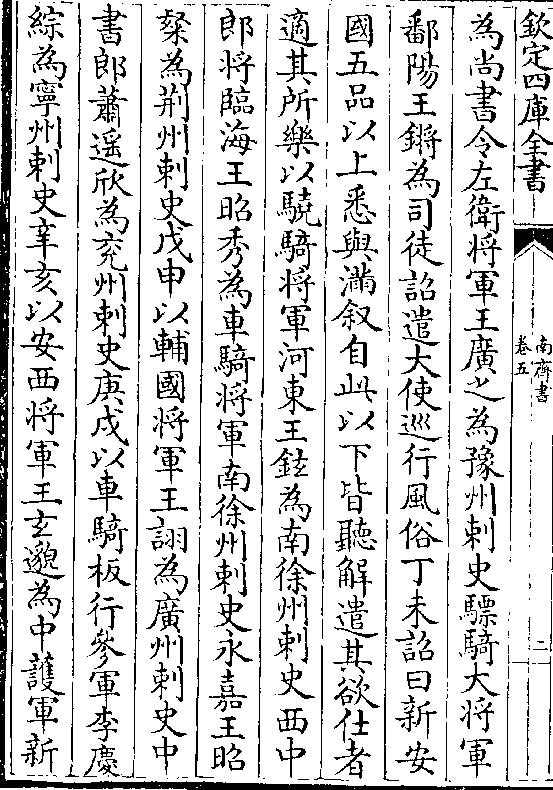 欽定四庫全書
南齊書
卷五
二
為尚書令左衛将軍王廣之為豫州刺史驃騎大将軍
鄱陽王鏘為司徒詔遣大使巡行風俗丁未詔曰新安
國五品以上悉與滿叙自此以下皆聽解遣其欲仕者
適其所樂以驍騎将軍河東王鉉為南徐州刺史西中
郎将臨海王昭秀為車騎将軍南徐州刺史永嘉王昭
粲為荆州刺史戊申以輔國将軍王詡為廣州刺史中
書郎蕭遥欣為兖州刺史庚戌以車騎板行參軍李慶
綜為寧州刺史辛亥以安西将軍王玄邈為中護軍新